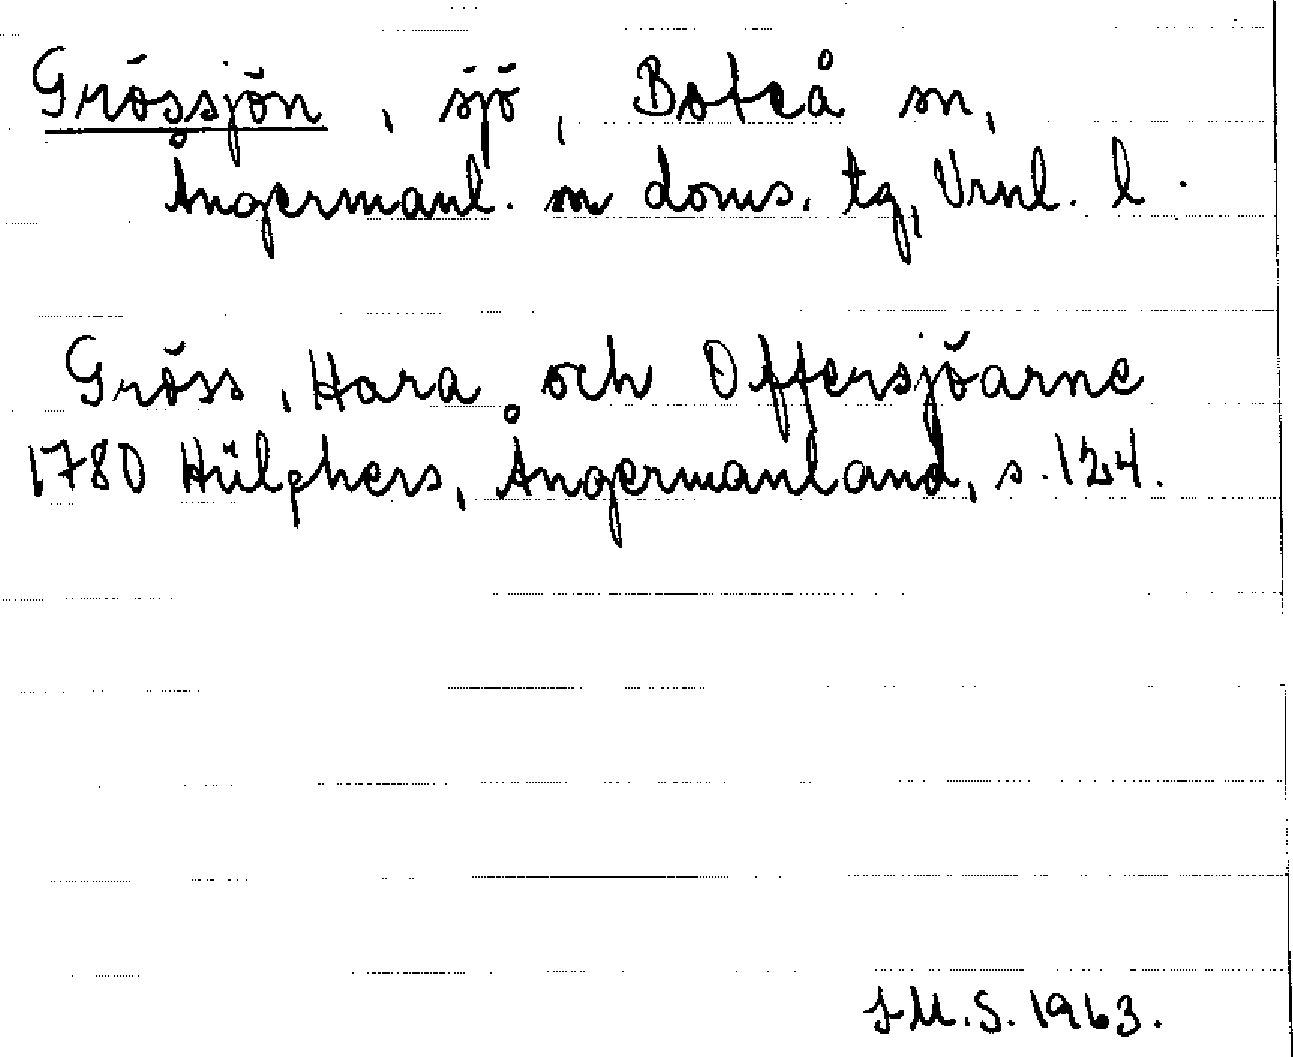 Grössjön, sjö, Boteå sn,
Ångermanl. m doms. tg, Vrnl. l.
Gröss, Hara och Offersjöarne
1780 Hülphers, Ångermanland, s. 124.
J.M.S. 1963.